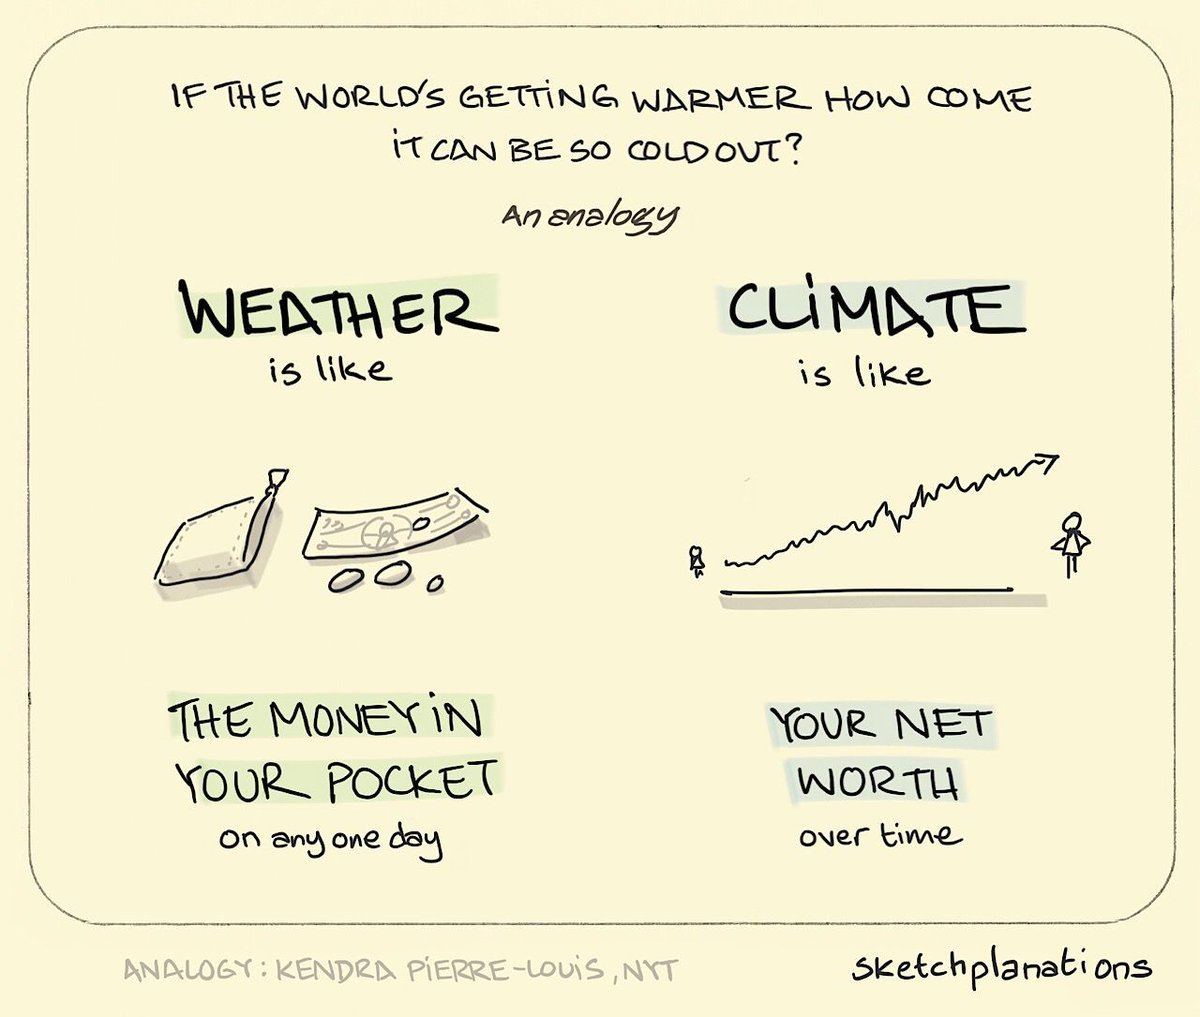 IF THE WORLD'S GETTING WARMER HOW COME
IT CAN BE SO COLD OUT?
An analogy
WEATHER
is like
THE MONEY IN
YOUR POCKET
on any one day
CLIMATE
is like
YOUR NET
WORTH
over time
ANALOGY: KENDRA PIERRE-LOUIS, NYT
sketchplanations